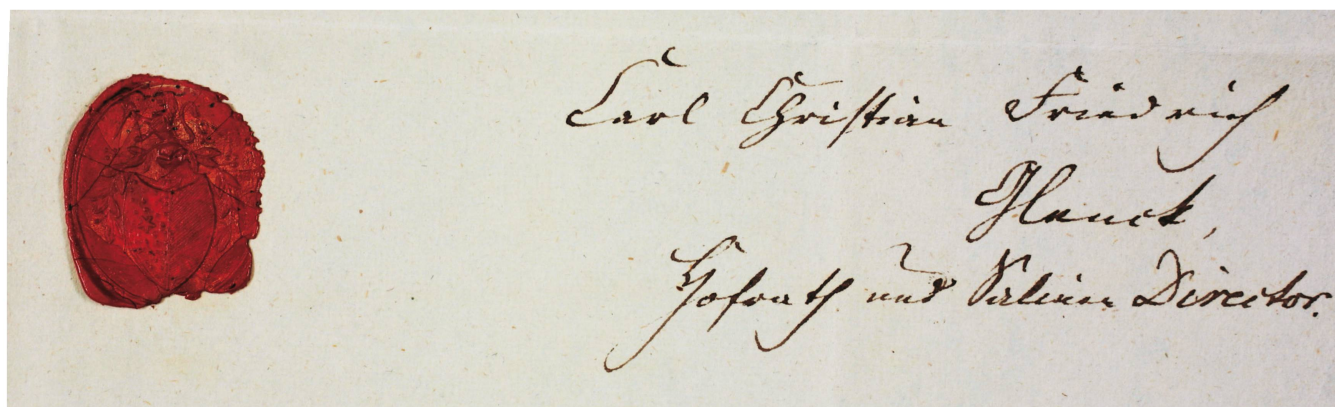 Carl Christian Friedrich
Glenck,
Hofrath und Salinen Director.